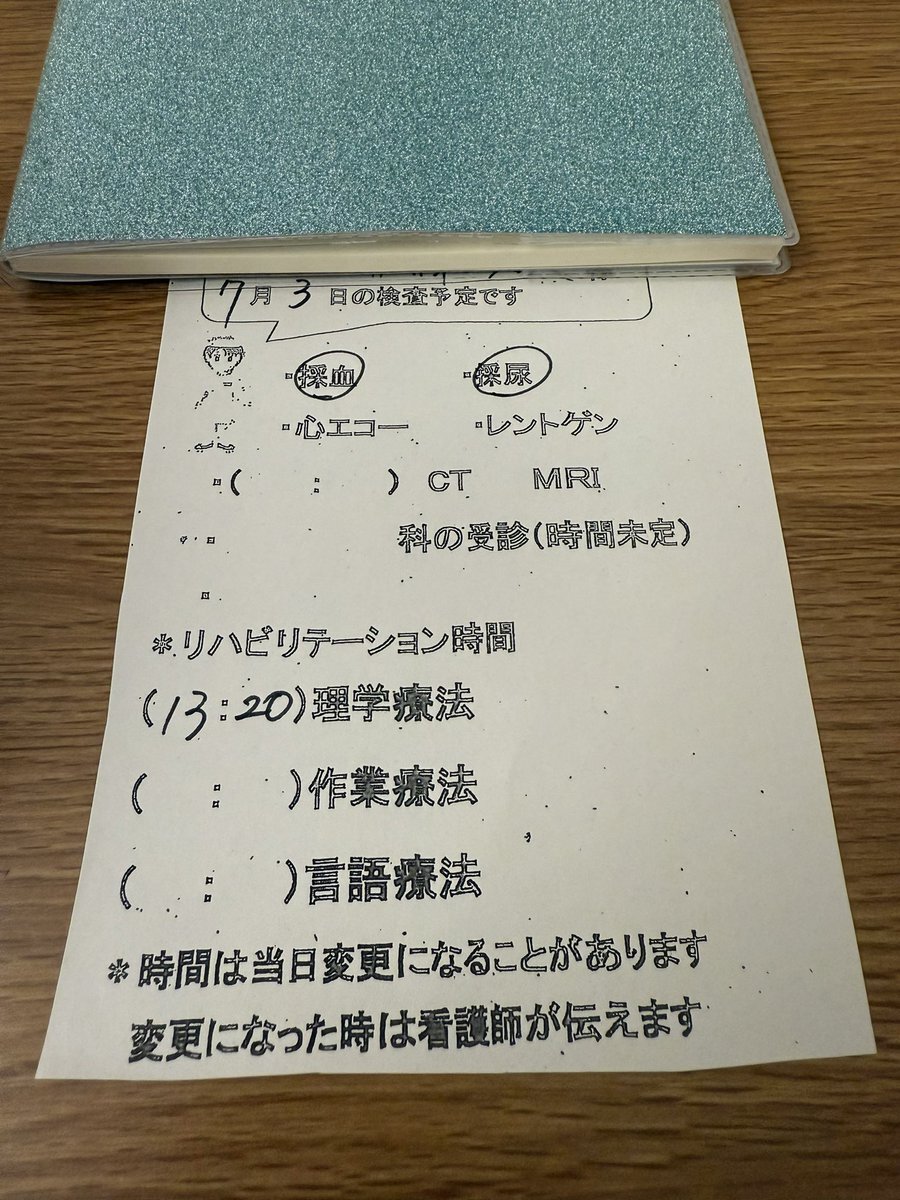 7月 3 日の検査予定です
・採血 ・採尿
・心エコー ・レントゲン
・( : ) CT MRI
・ 科の受診(時間未定)
・
*リハビリテーション時間
(13:20)理学療法
( : )作業療法
( : )言語療法
*時間は当日変更になることがあります
変更になった時は看護師が伝えます